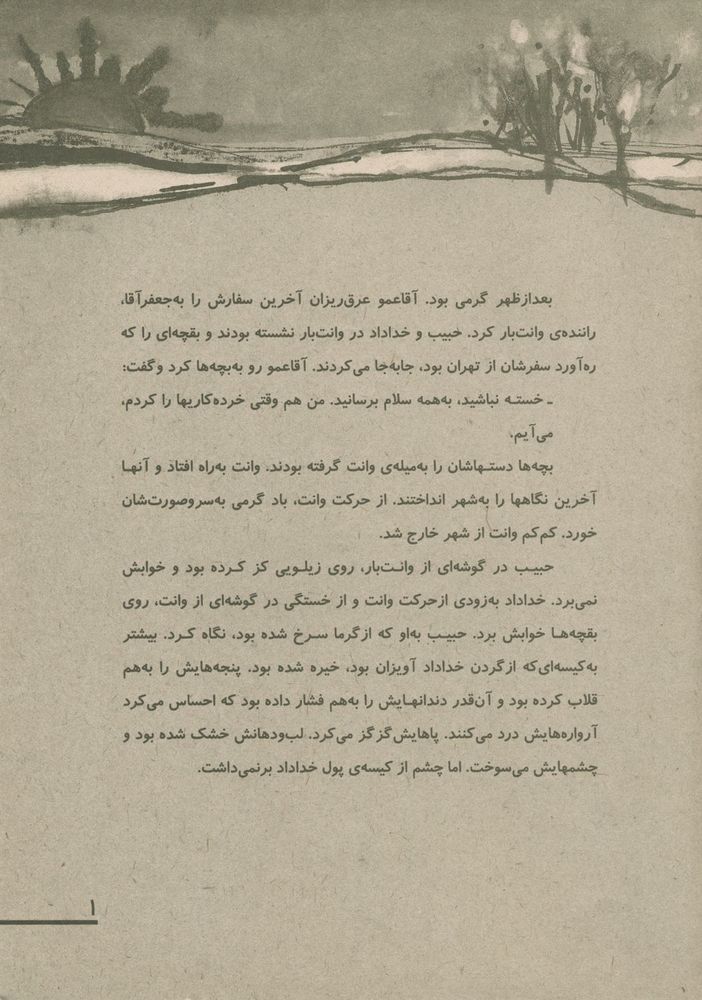 بعدازظهر گرمی بود. آقاعمو عرق‌ریزان آخرین سفارش را به‌جعفرآقا،
راننده‌ی وانت‌بار کرد. حبیب و خداداد در وانت‌بار نشسته بودند و بقچه‌ای را که
ره‌آورد سفرشان از تهران بود، جابه‌جا می‌کردند. آقاعمو رو به‌بچه‌ها کرد و گفت:
ـ خسته نباشید، به‌همه سلام برسانید. من هم وقتی خرده‌کاریها را کردم،
می‌آیم.
بچه‌ها دستهاشان را به‌میله‌ی وانت گرفته بودند. وانت به‌راه افتاد و آنها
آخرین نگاهها را به‌شهر انداختند. از حرکت وانت، باد گرمی به‌سروصورت‌شان
خورد. کم‌کم وانت از شهر خارج شد.
حبیب در گوشه‌ای از وانت‌بار، روی زیلویی کز کرده بود و خوابش
نمی‌برد. خداداد به‌زودی ازحرکت وانت و از خستگی در گوشه‌ای از وانت، روی
بقچه‌ها خوابش برد. حبیب به‌او که ازگرما سرخ شده بود، نگاه کرد. بیشتر
به‌کیسه‌ای‌که ازگردن خداداد آویزان بود، خیره شده بود. پنجه‌هایش را به‌هم
قلاب کرده بود و آن‌قدر دندانهایش را به‌هم فشار داده بود که احساس می‌کرد
آرواره‌هایش درد می‌کنند. پاهایش گزگز می‌کرد. لب‌ودهانش خشک شده بود و
چشمهایش می‌سوخت. اما چشم از کیسه‌ی پول خداداد برنمی‌داشت.
۱